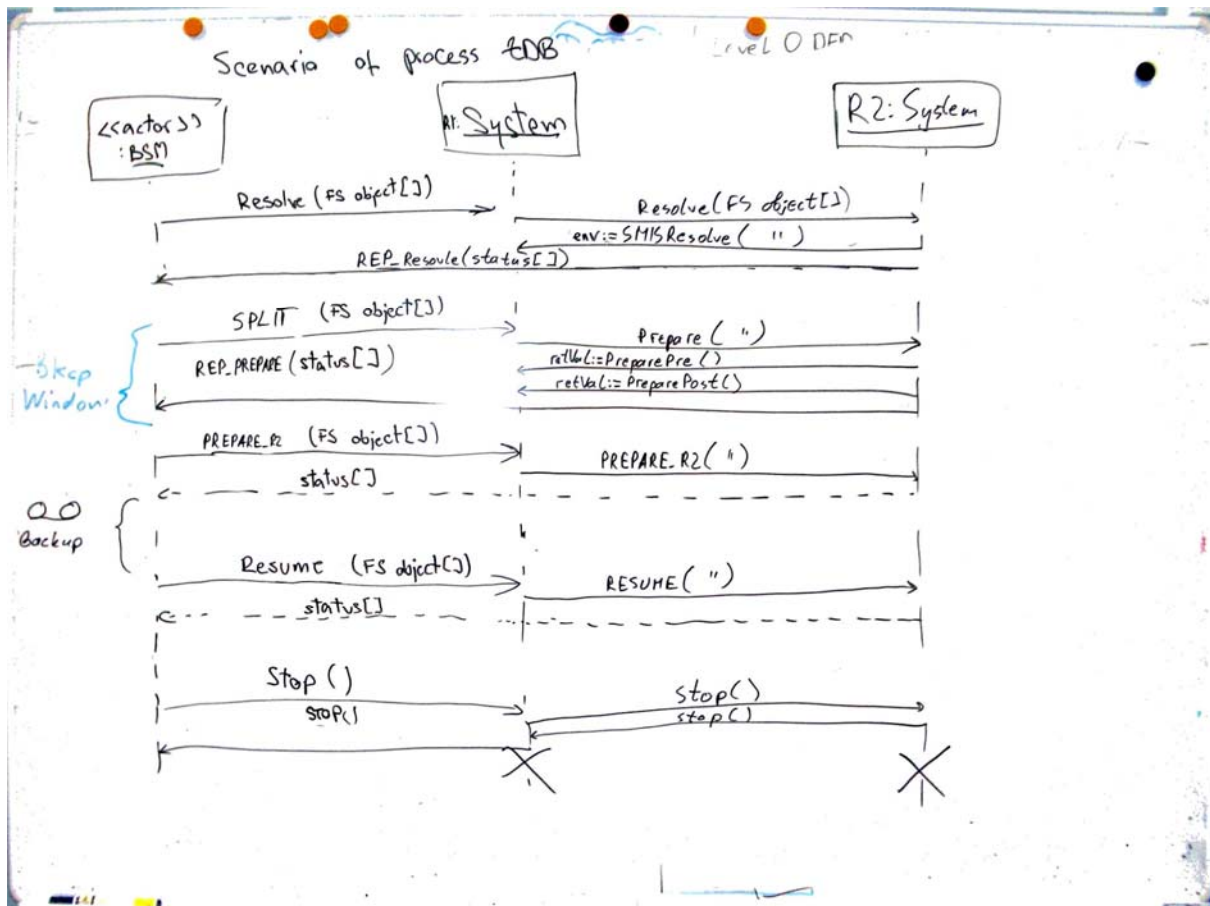 Scenario of process tDB
Level 0 DFD
<<actor>>
:BSM
R1: System
R2: System
Resolve (FS object[])
Resolve (FS object[])
env:= SMISResolve ( " )
REP_Resovle(status[])
SPLIT (FS object[])
Prepare ( " )
REP_PREPARE (status[])
retVal:=PreparePre()
retVal:= PreparePost()
Bkcp
Window
PREPARE_R2 (FS object[])
PREPARE_R2( " )
status[]
Backup
Resume (FS object[])
RESUME( " )
status[]
Stop ()
stop()
stop()
stop()